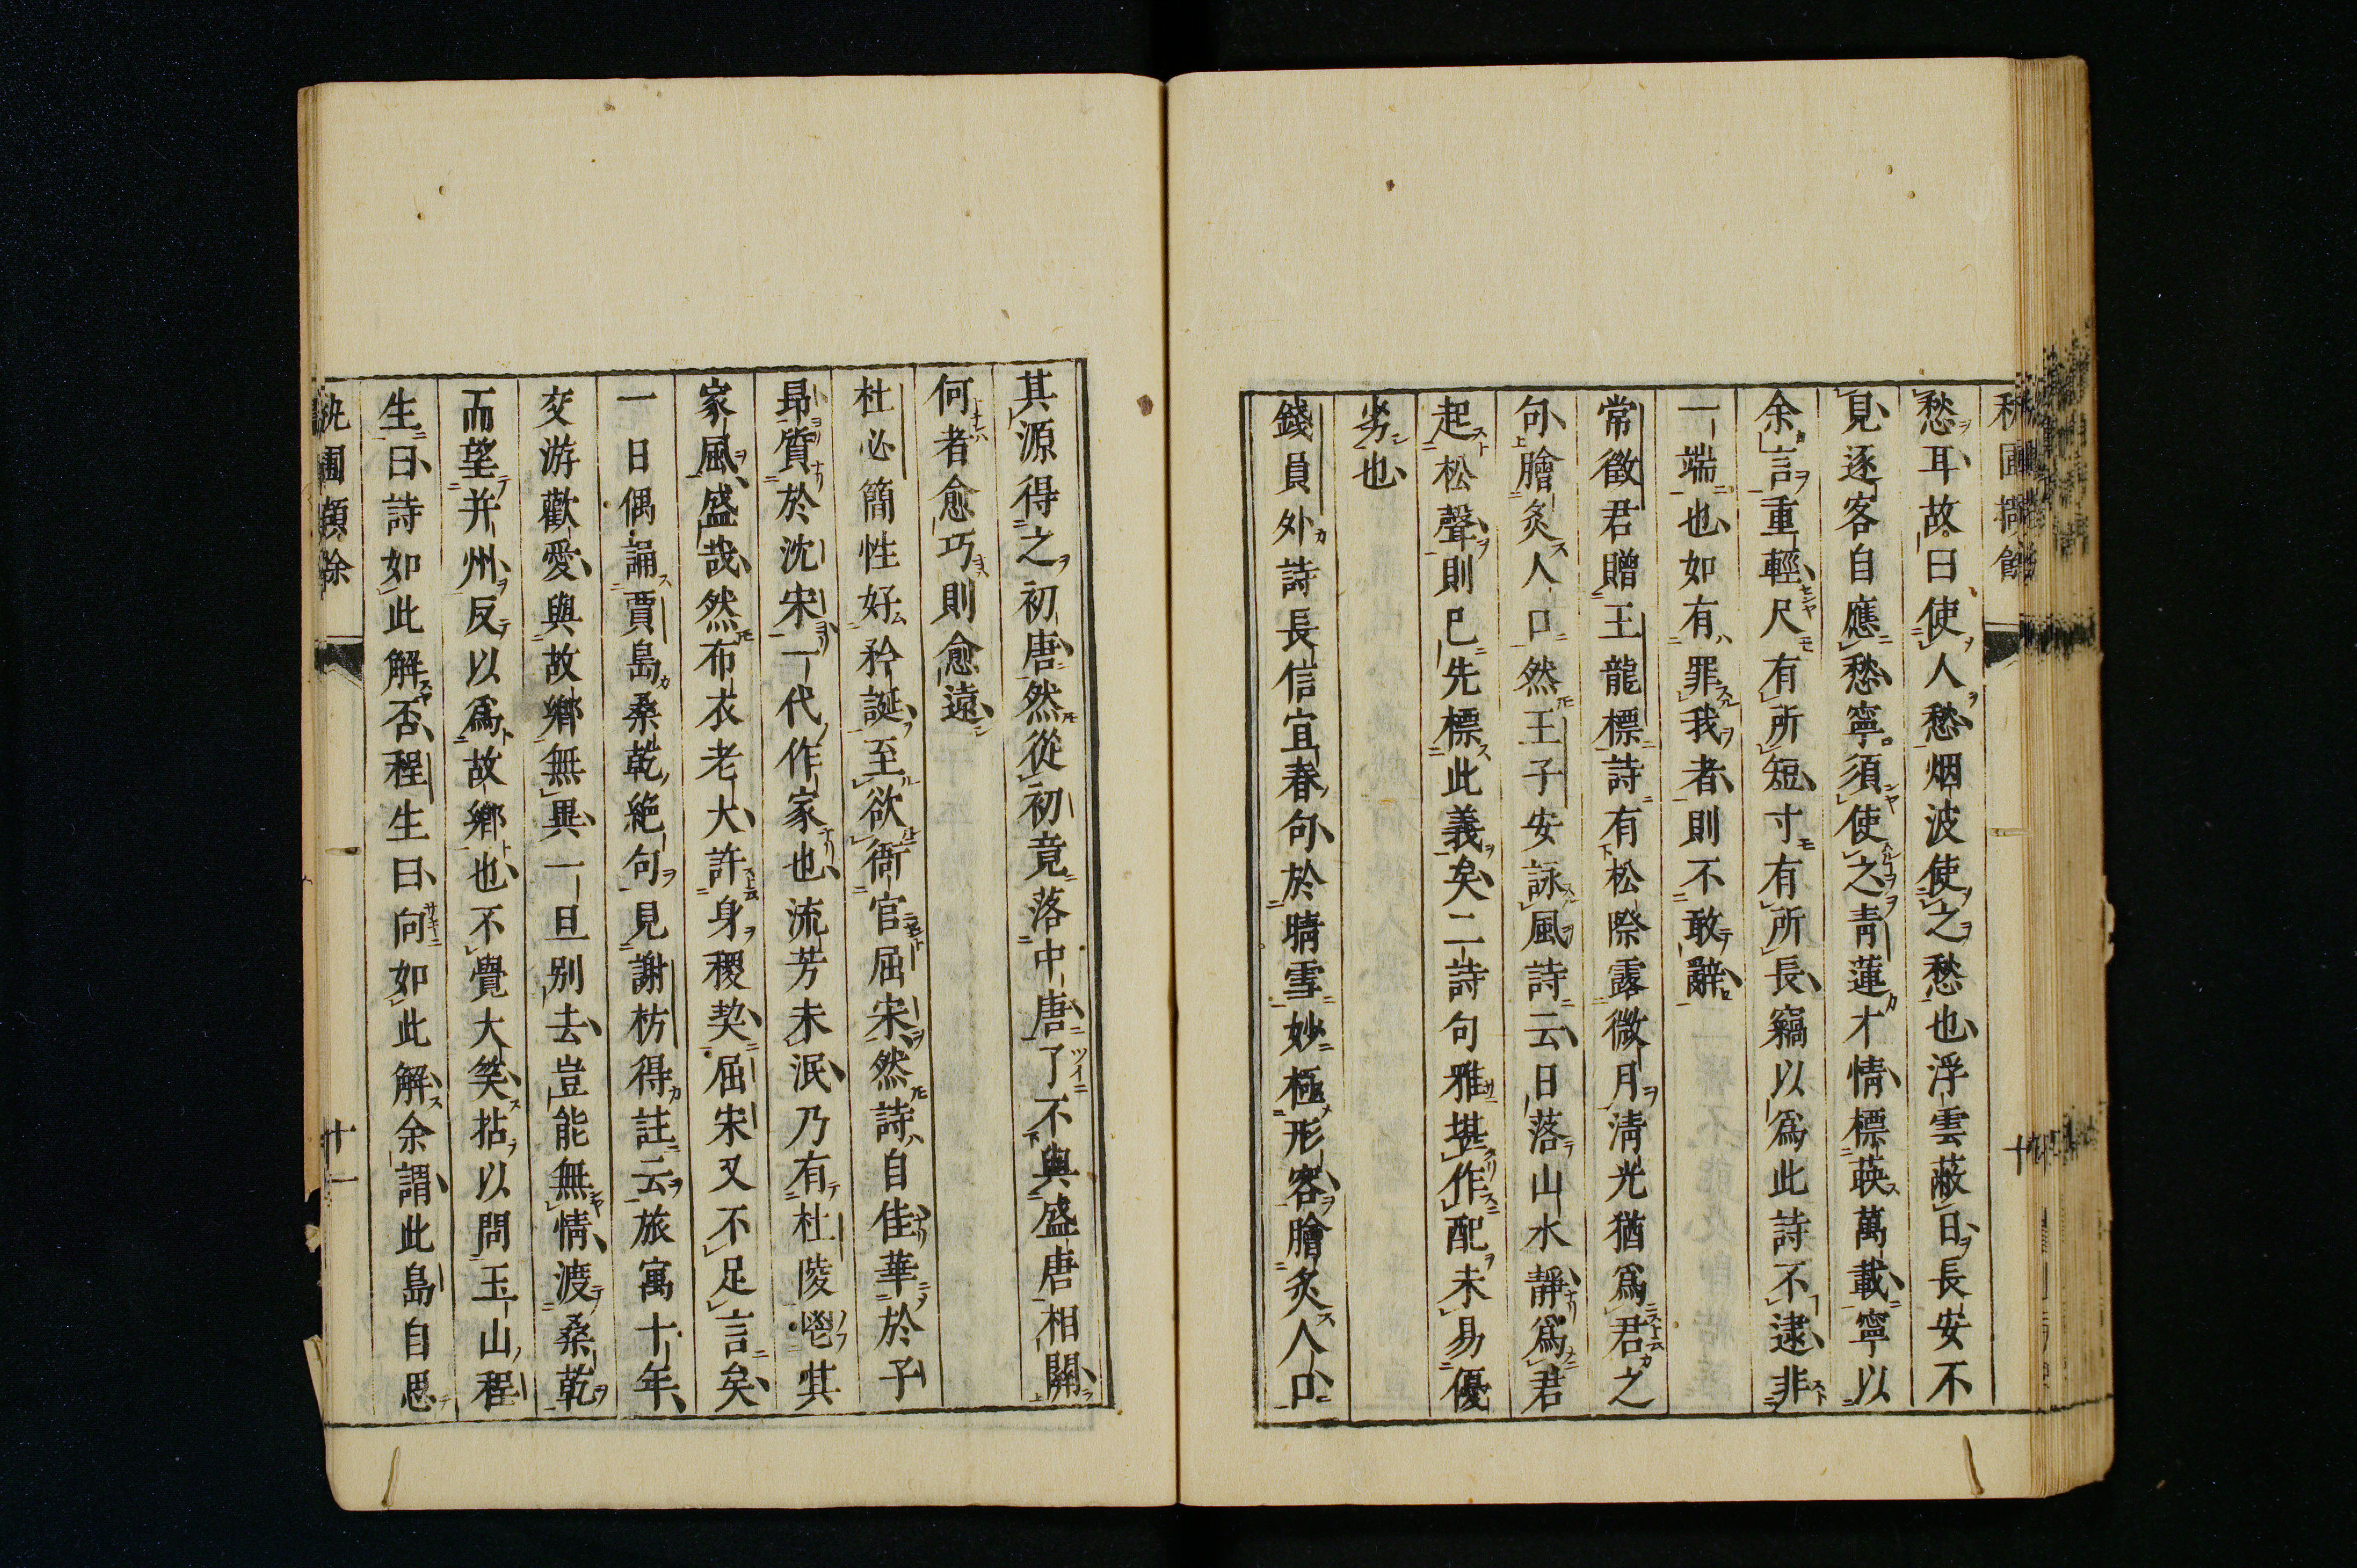 愁耳故曰使人愁烟波使之愁也浮雲蔽日長安不
見逐客自應愁寧須使之青蓮才情標萬載寧以
余言重輕尺有所短寸有所長竊以爲此詩不逮非
一端也如有罪我者則不敢辭
常徵君贈王龍標詩有松際露微月清光猶爲君之
句膾炙人口然王子安詠風詩云日落山水靜爲君
起松聲則已先標此義矣二詩句雅堪作配未易優
劣也
錢員外詩長信宜春句於晴雪妙極形容膾炙人口
其源得之初唐然從初竟落中唐了不與盛唐相關
何者愈巧則愈遠
杜必簡性好矜誕至欲衙官屈宋然詩自佳華於子
昻質於沈宋一代作家也流芳未泯乃有杜陵鬯其
家風盛哉然布衣老大許身稷契屈宋又不足言矣
一日偶誦賈島桑乾絶句見謝枋得註云旅寓十年
交游歡愛與故鄉無異一旦别去豈能無情渡桑乾
而望并州反以爲故鄉也不覺大笑拈以問玉山程
生曰詩如此解否程生曰向如此解余謂此島自思
十一